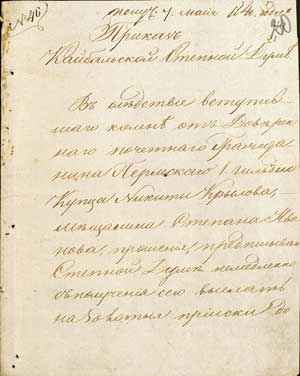 №46
получ. 7. мая 184 года
Приказъ
Кайбальской Степной Думѣ
Въ слѣдствіе вступив
шаго комнѣ отъ Довѣрен
наго почетнаго Гражда
нина Пермскаго 1. гильдіи
Купца Никиты Крылова,
мѣщанина Степана Ива
нова, прошенія, предписываю
Степной Думѣ немедленно
съ полученія сего выслать
на золотыя пріиски до